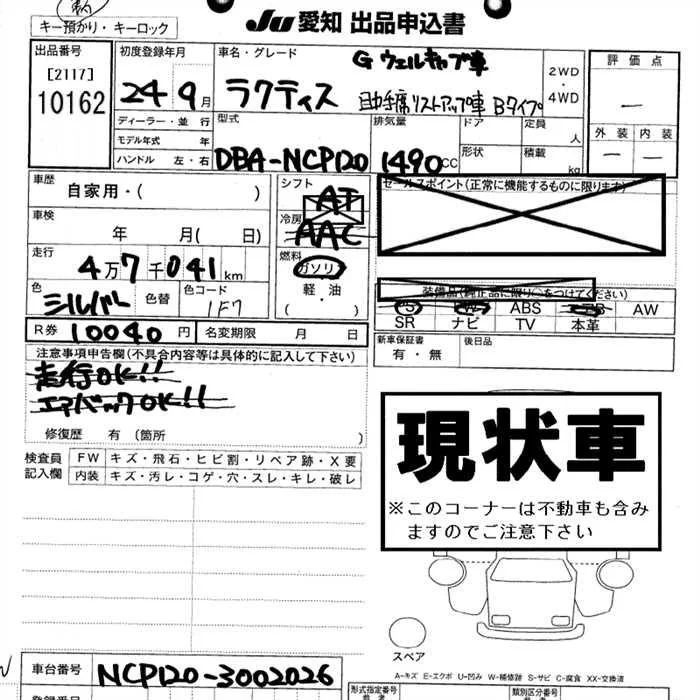 Ju 愛知 出品申込書
キー預かり・キーロック
出品番号
[2117]
10162
初度登録年月
24 9月
車名・グレード
G ウェルキャブ車
ラクティス 助手席リフトアップ車 Bタイプ
2WD
・
4WD
評価点
―
外装 内装
― ―
ディーラー・並行
モデル年式 年
ハンドル 左・右
型式
DBA-NCP120
排気量
1490CC
ドア
形状
定員
人
積載
kg
車歴
自家用・( )
車検
年 月( 日)
走行
4万7千041km
色
シルバー
色替
色コード
1F7
シフト
AT
冷房
AAC
燃料
ガソリン
軽・油
( )
セールスポイント(正常に機能するものに限ります)
装備品(純正品に限り○をつけてください)
PS PW ABS SR AW
SR ナビ TV 本革
新車保証書
有・無
後日品
R券 10040円 名変期限 月 日
注意事項申告欄(不具合内容等は具体的に記入して下さい)
走行OK!!
エアバックOK!!
修復歴 有 (箇所 )
検査員
記入欄
FW キズ・飛石・ヒビ割・リペア跡・X要
内装 キズ・汚レ・コゲ・穴・スレ・キレ・破レ
現状車
※このコーナーは不動車も含み
ますのでご注意下さい
スペア
A-キズ E-エクボ U-凹み W-補修跡 S-サビ C-腐食 XX-交換済
車台番号 NCP120-3002026
登録番号
形式指定番号
参考
類別区分番号
参考